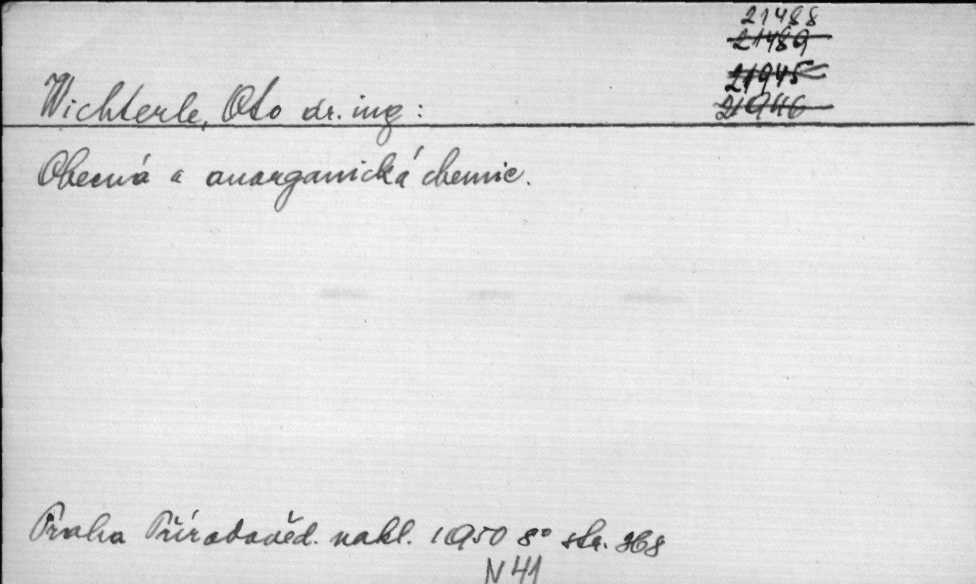 21488
21489
21945
21946
Wichterle, Oto dr. ing:
Obecná a anorganická chemie.
Praha Přírodověd. nakl. 1950 8° str. 368
N 41